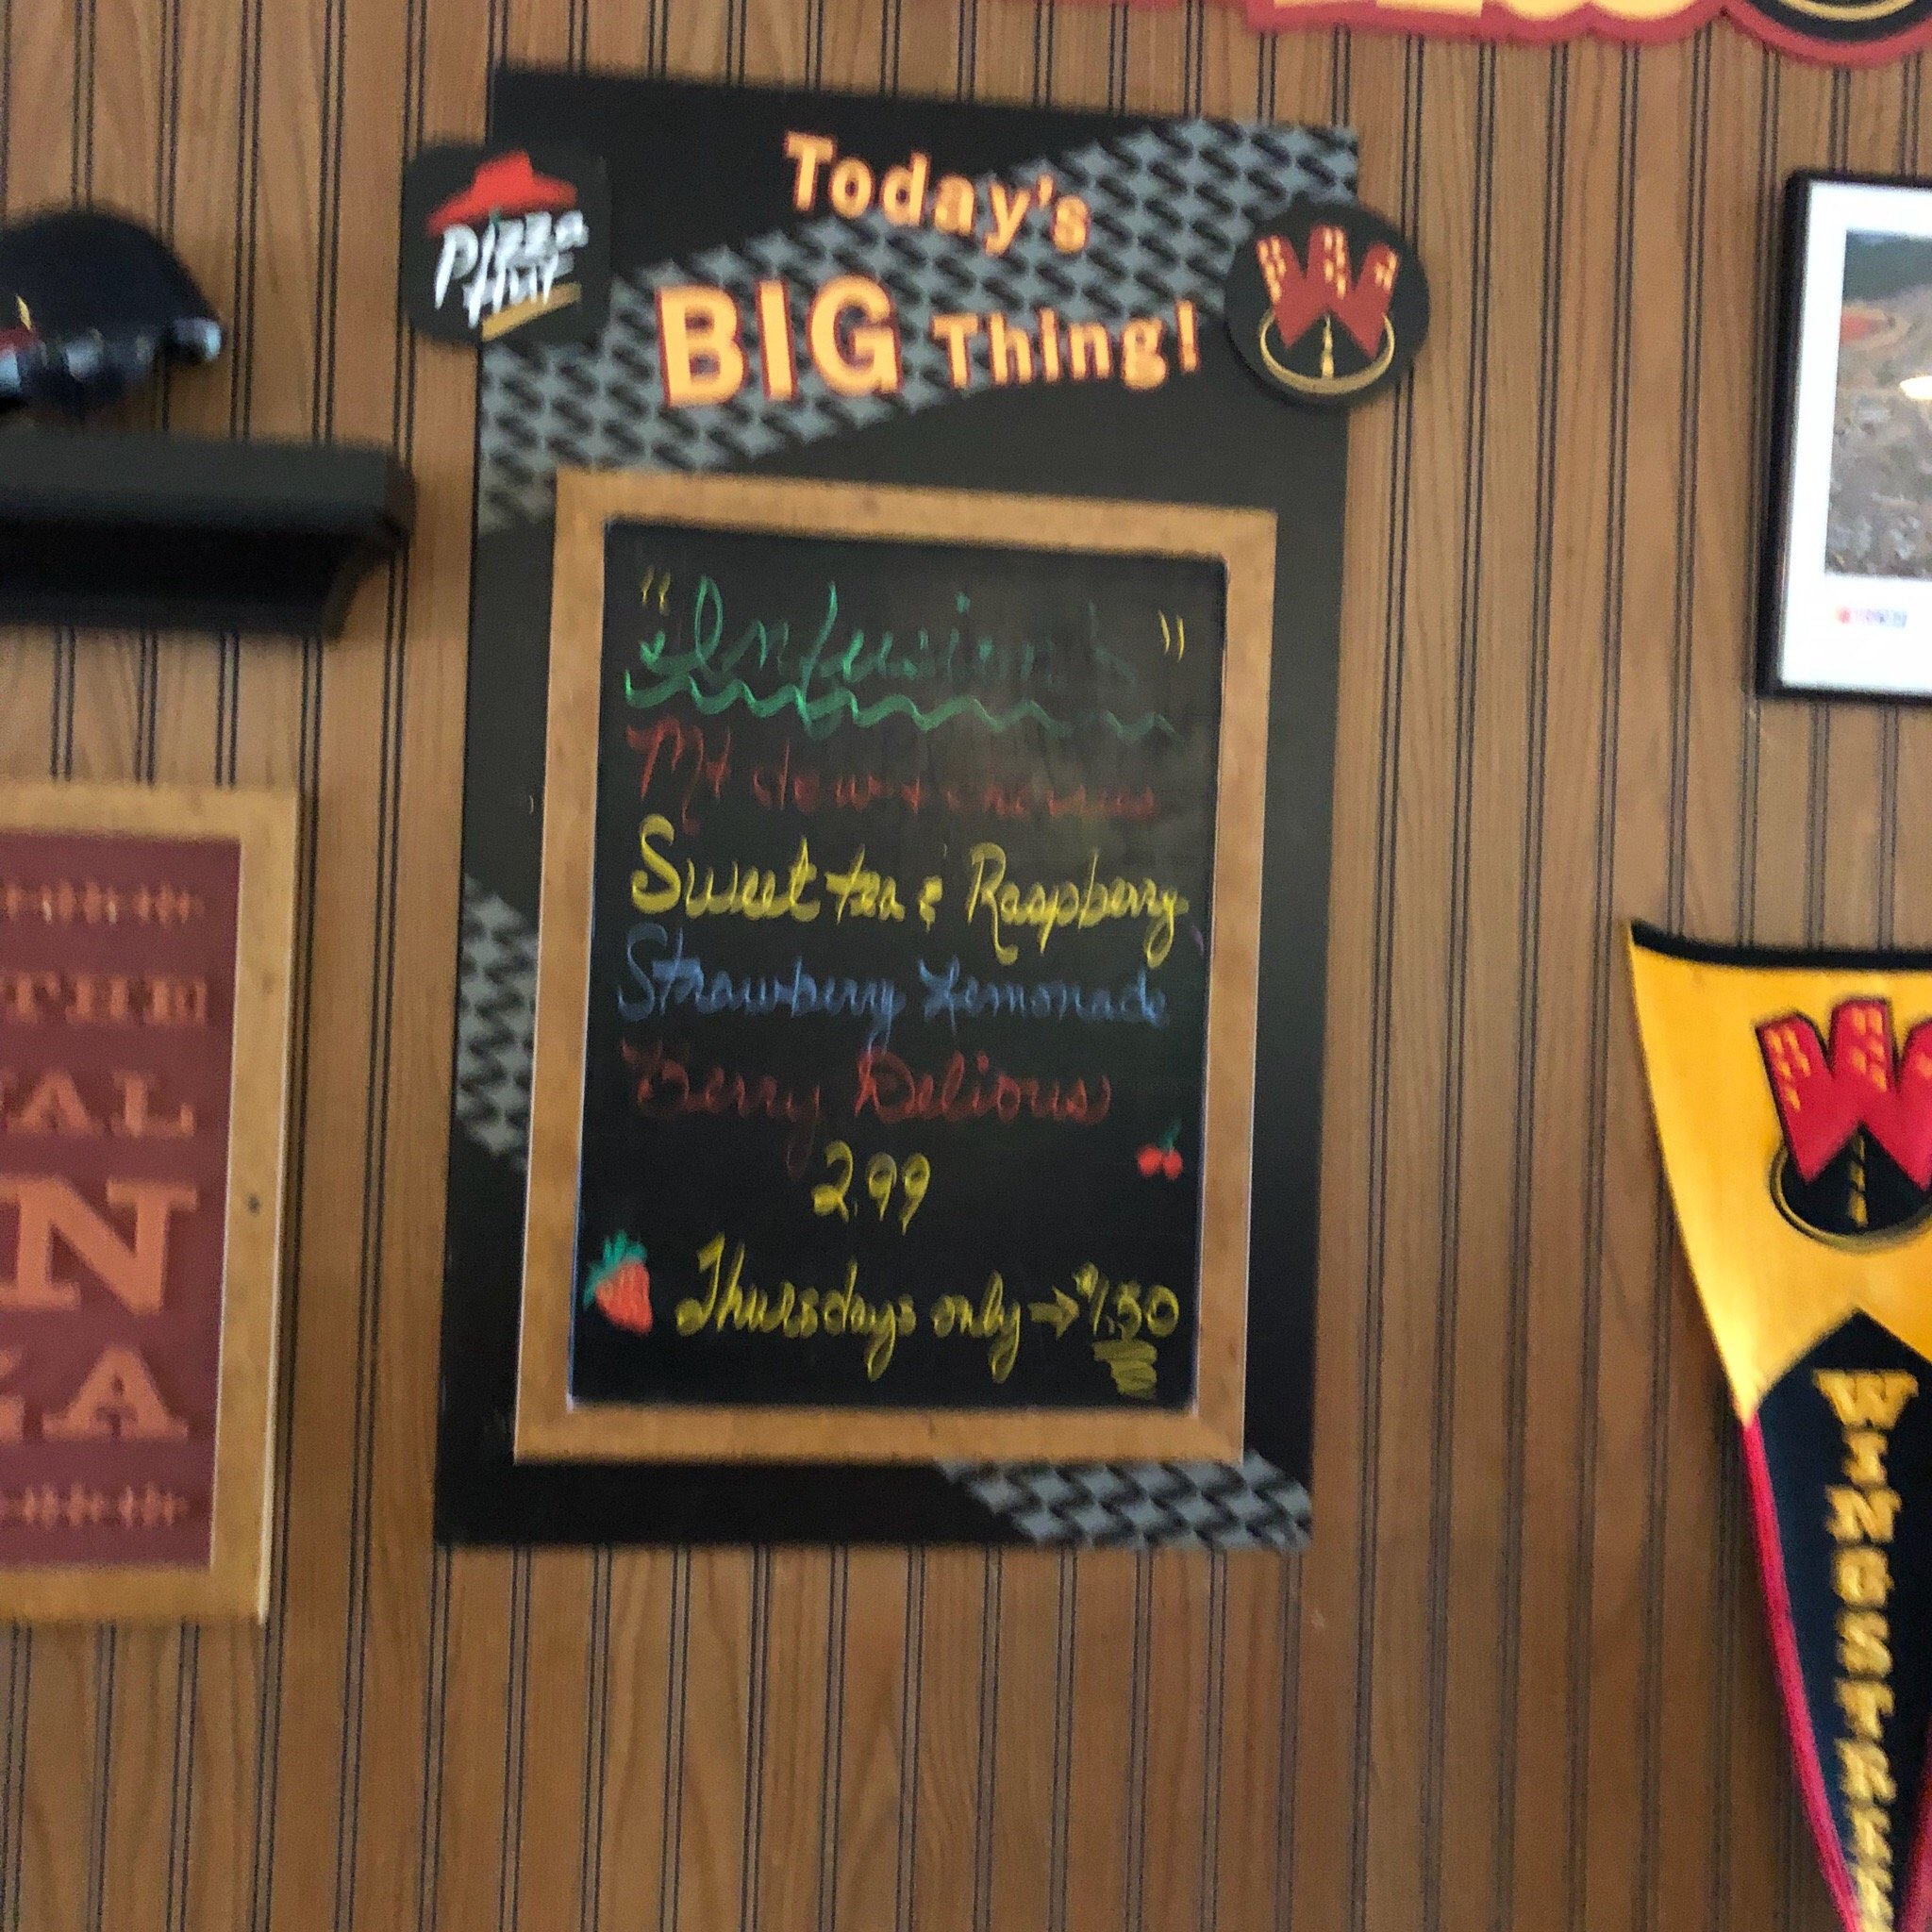 Today's
BIG Thing!
Pizza
Hut
W
"Infusions"
Mt dew & cherries
Sweet tea & Raspberry
Strawberry Lemonade
Berry Delious
2.99
Thursdays only → $1.50
THE
AL
N
ZA
W
WINGSTREET